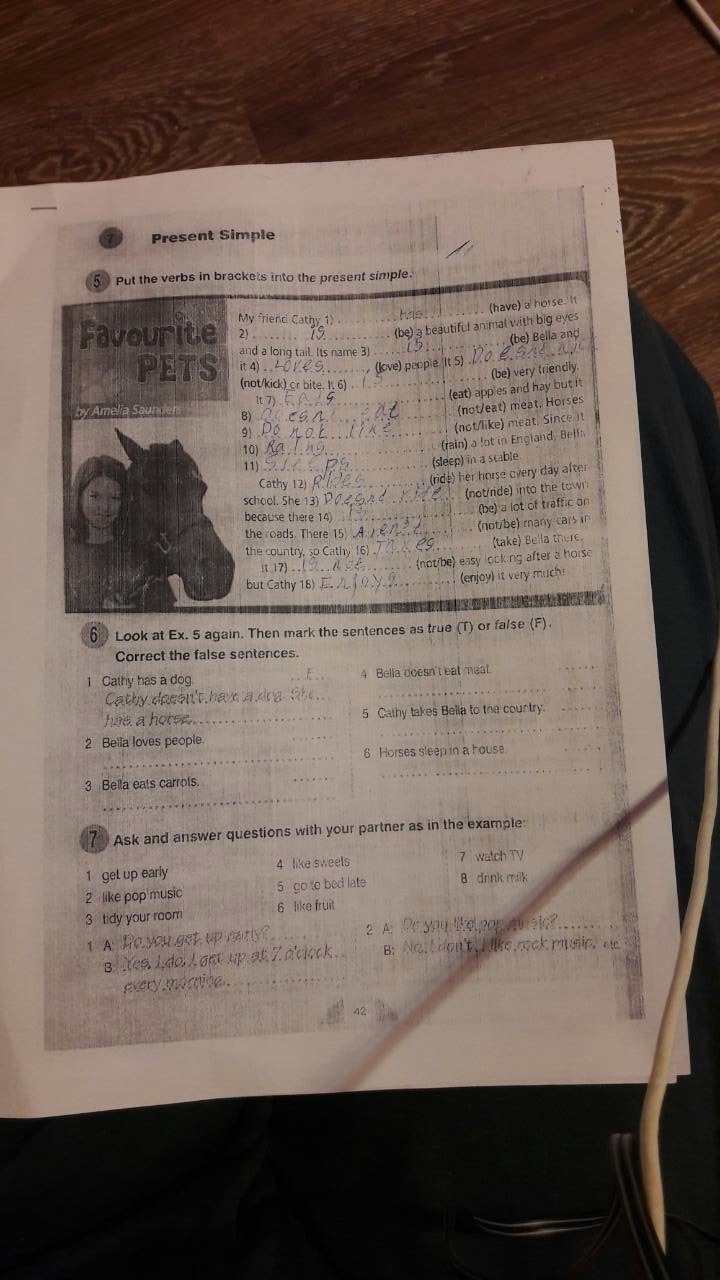 7 Present Simple
5 Put the verbs in brackets into the present simple.
Favourite
PETS
by Amelia Saunders
My friend Cathy 1) has (have) a horse. It
2) is (be) a beautiful animal with big eyes
and a long tail. Its name 3) is (be) Bella and
it 4) Loves (love) people. It 5) Doesnt kick
(not/kick) or bite. It 6) is (be) very friendly.
It 7) Eats (eat) apples and hay but it
8) Doesnt eat (not/eat) meat. Horses
9) Do not like (not/like) meat. Since it
10) (rain) a lot in England, Bella
11) Sleeps (sleep) in a stable.
Cathy 12) Rides (ride) her horse every day after
school. She 13) Doesnt ride (not/ride) into the town
because there 14) is (be) a lot of traffic on
the roads. There 15) Arent (not/be) many cars in
the country, so Cathy 16) Takes (take) Bella there.
It 17) is not (not/be) easy looking after a horse
but Cathy 18) Enjoys (enjoy) it very much!
6 Look at Ex. 5 again. Then mark the sentences as true (T) or false (F).
Correct the false sentences.
1 Cathy has a dog. F
Cathy doesn't have a dog. She
has a horse.
2 Bella loves people.
3 Bella eats carrots.
4 Bella doesn't eat meat.
5 Cathy takes Bella to the country.
6 Horses sleep in a house.
7 Ask and answer questions with your partner as in the example:
1 get up early
2 like pop music
3 tidy your room
4 like sweets
5 go to bed late
6 like fruit
7 watch TV
8 drink milk
1 A: Do you get up early?
B: Yes, I do. I get up at 7 o'clock
every morning.
2 A: Do you like pop music?
B: No, I don't, I like rock music. etc
42